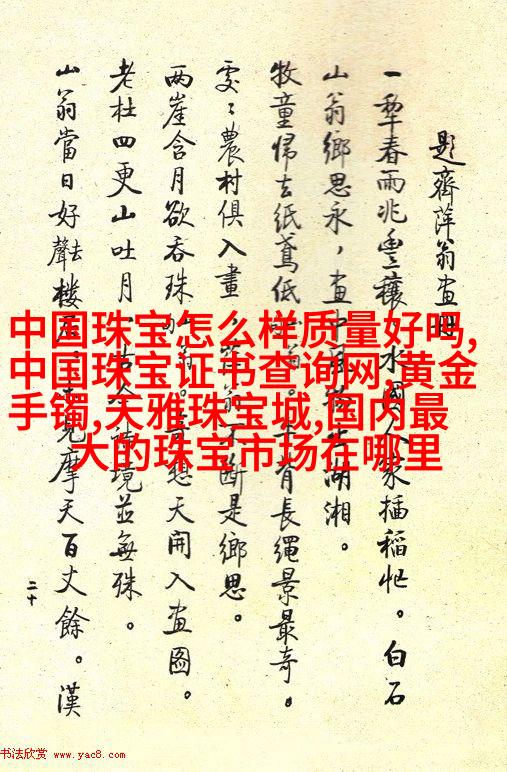 題齊萍翁畫冊
一犁春雨兆豐穰,水國人家插稻忙。白石
山翁鄉思永,畫中風物出湖湘。
牧童歸去紙鳶低 牛背長繩景最奇。
處〻農村俱入畫,萍翁不斷是鄉思。
兩崖含月欲吞珠 奇想天開入畫圖。
老杜四更山吐月,古今詩境並無殊。
山翁當日好聲去樓居。 見摩天百丈餘。漢
二十
中国珠宝怎么样质量好吗,
中国珠宝证书查询网,黄金
手镯,天雅珠宝城,国内最
大的珠宝市场在哪里
书法欣赏 www.yac8.com